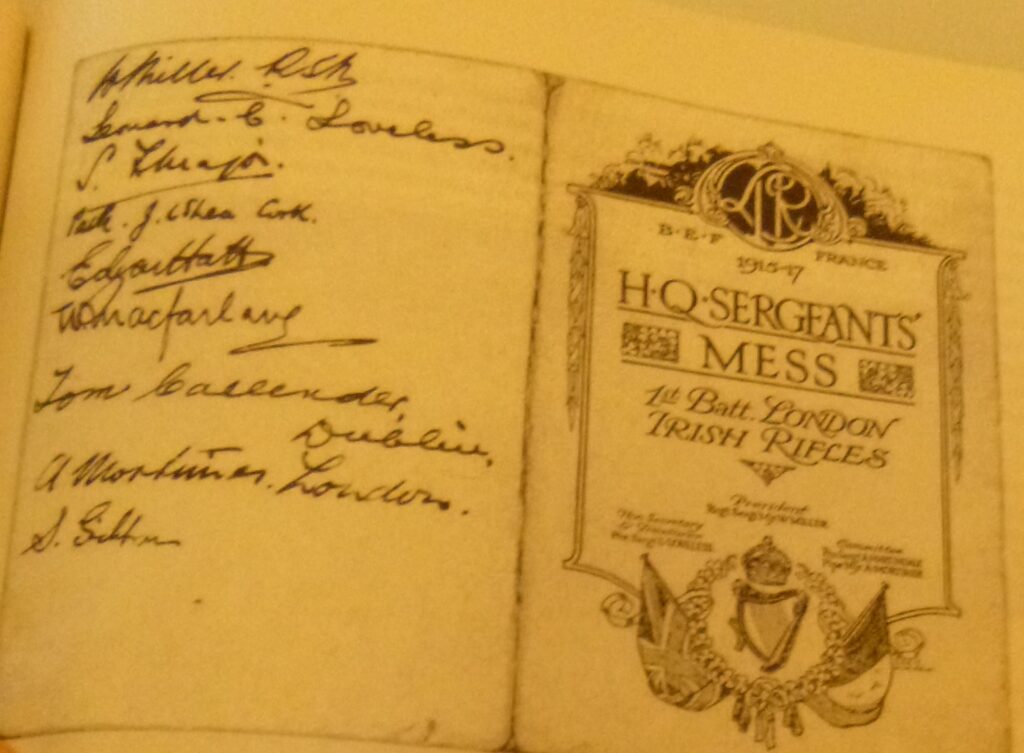 Miller. RSM
Leonard. C. Loveless.
S.
Patk. J. O'Shea Cork.
Edgar Hatt
W Macfarlane
Tom Callender,
Dublin.
A Mortimer. London.
S.
LIR
B·E·F FRANCE
1915-17
H·Q·SERGEANTS'
MESS
1st Batt. LONDON
IRISH RIFLES
President
The Secretary
Committee